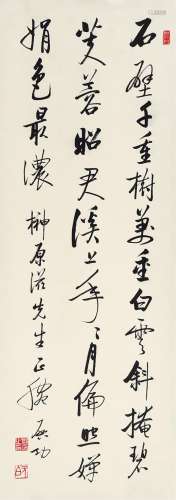 石壁千重樹萬重白雲斜掩碧
芙蓉昭君溪上年〻月偏照嬋
娟色最濃 榊原滋先生正腕 啟功